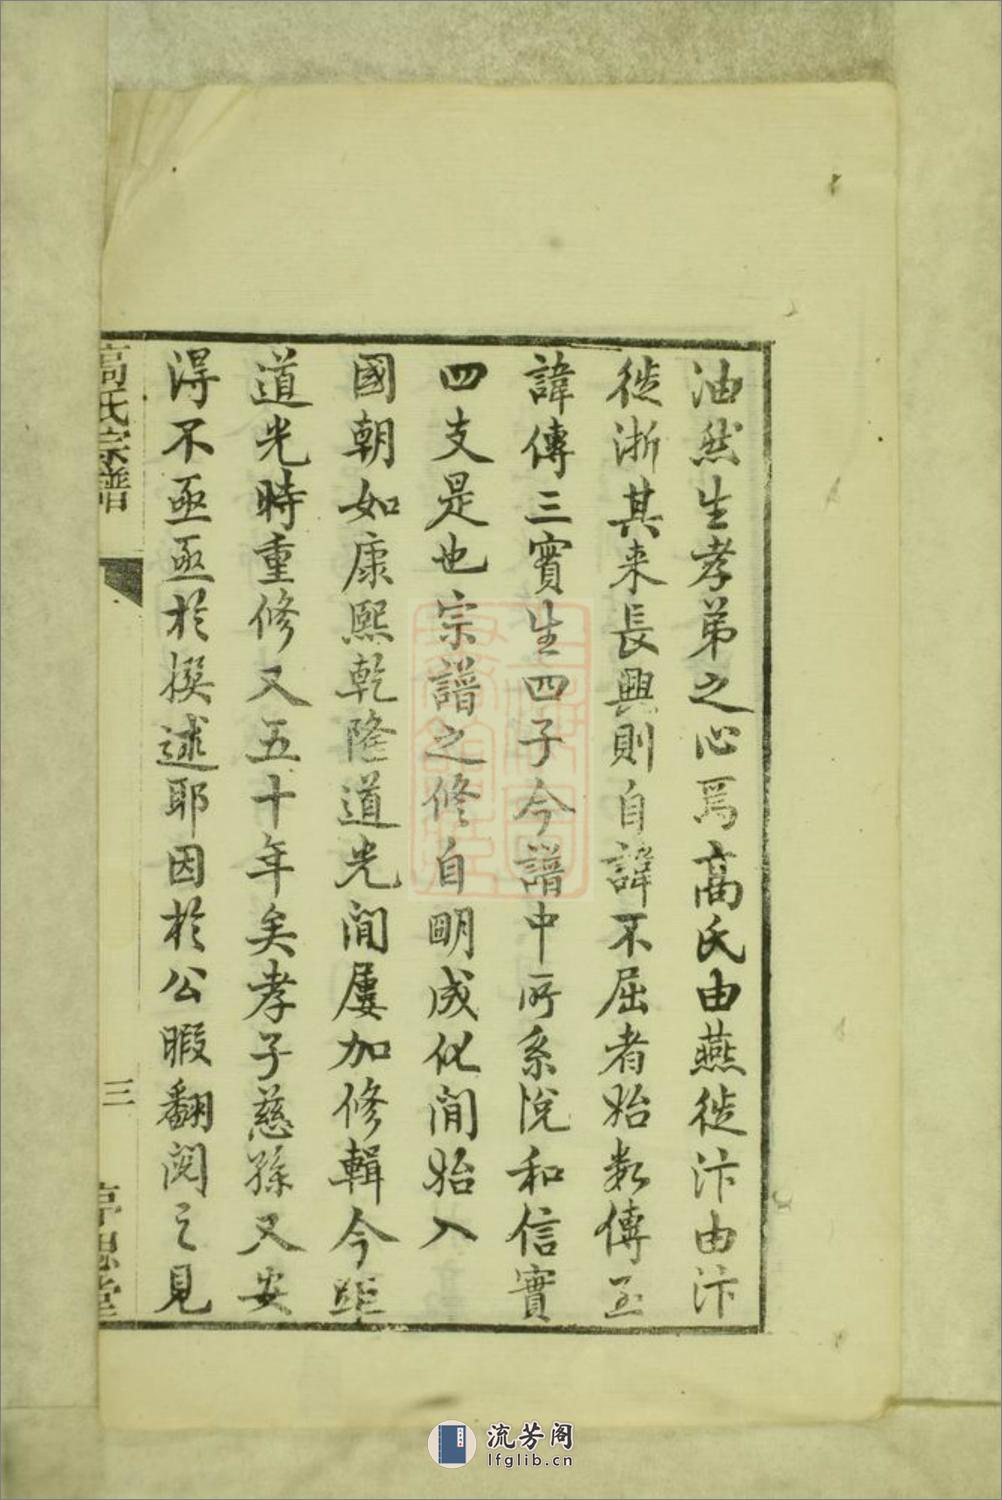 油然生孝弟之心焉高氏由燕徙汴由汴
徙浙其来長興則自諱不屈者始数傳至
諱傳三實生四子今譜中所系悅和信實
四支是也宗譜之修自明成化間始入
國朝如康熙乾隆道光間屢加修輯今距
道光時重修又五十年矣孝子慈孫又安
得不亟亟於撰述耶因於公暇翻閱之見
高氏宗譜
三
流芳阁
lfglib.cn